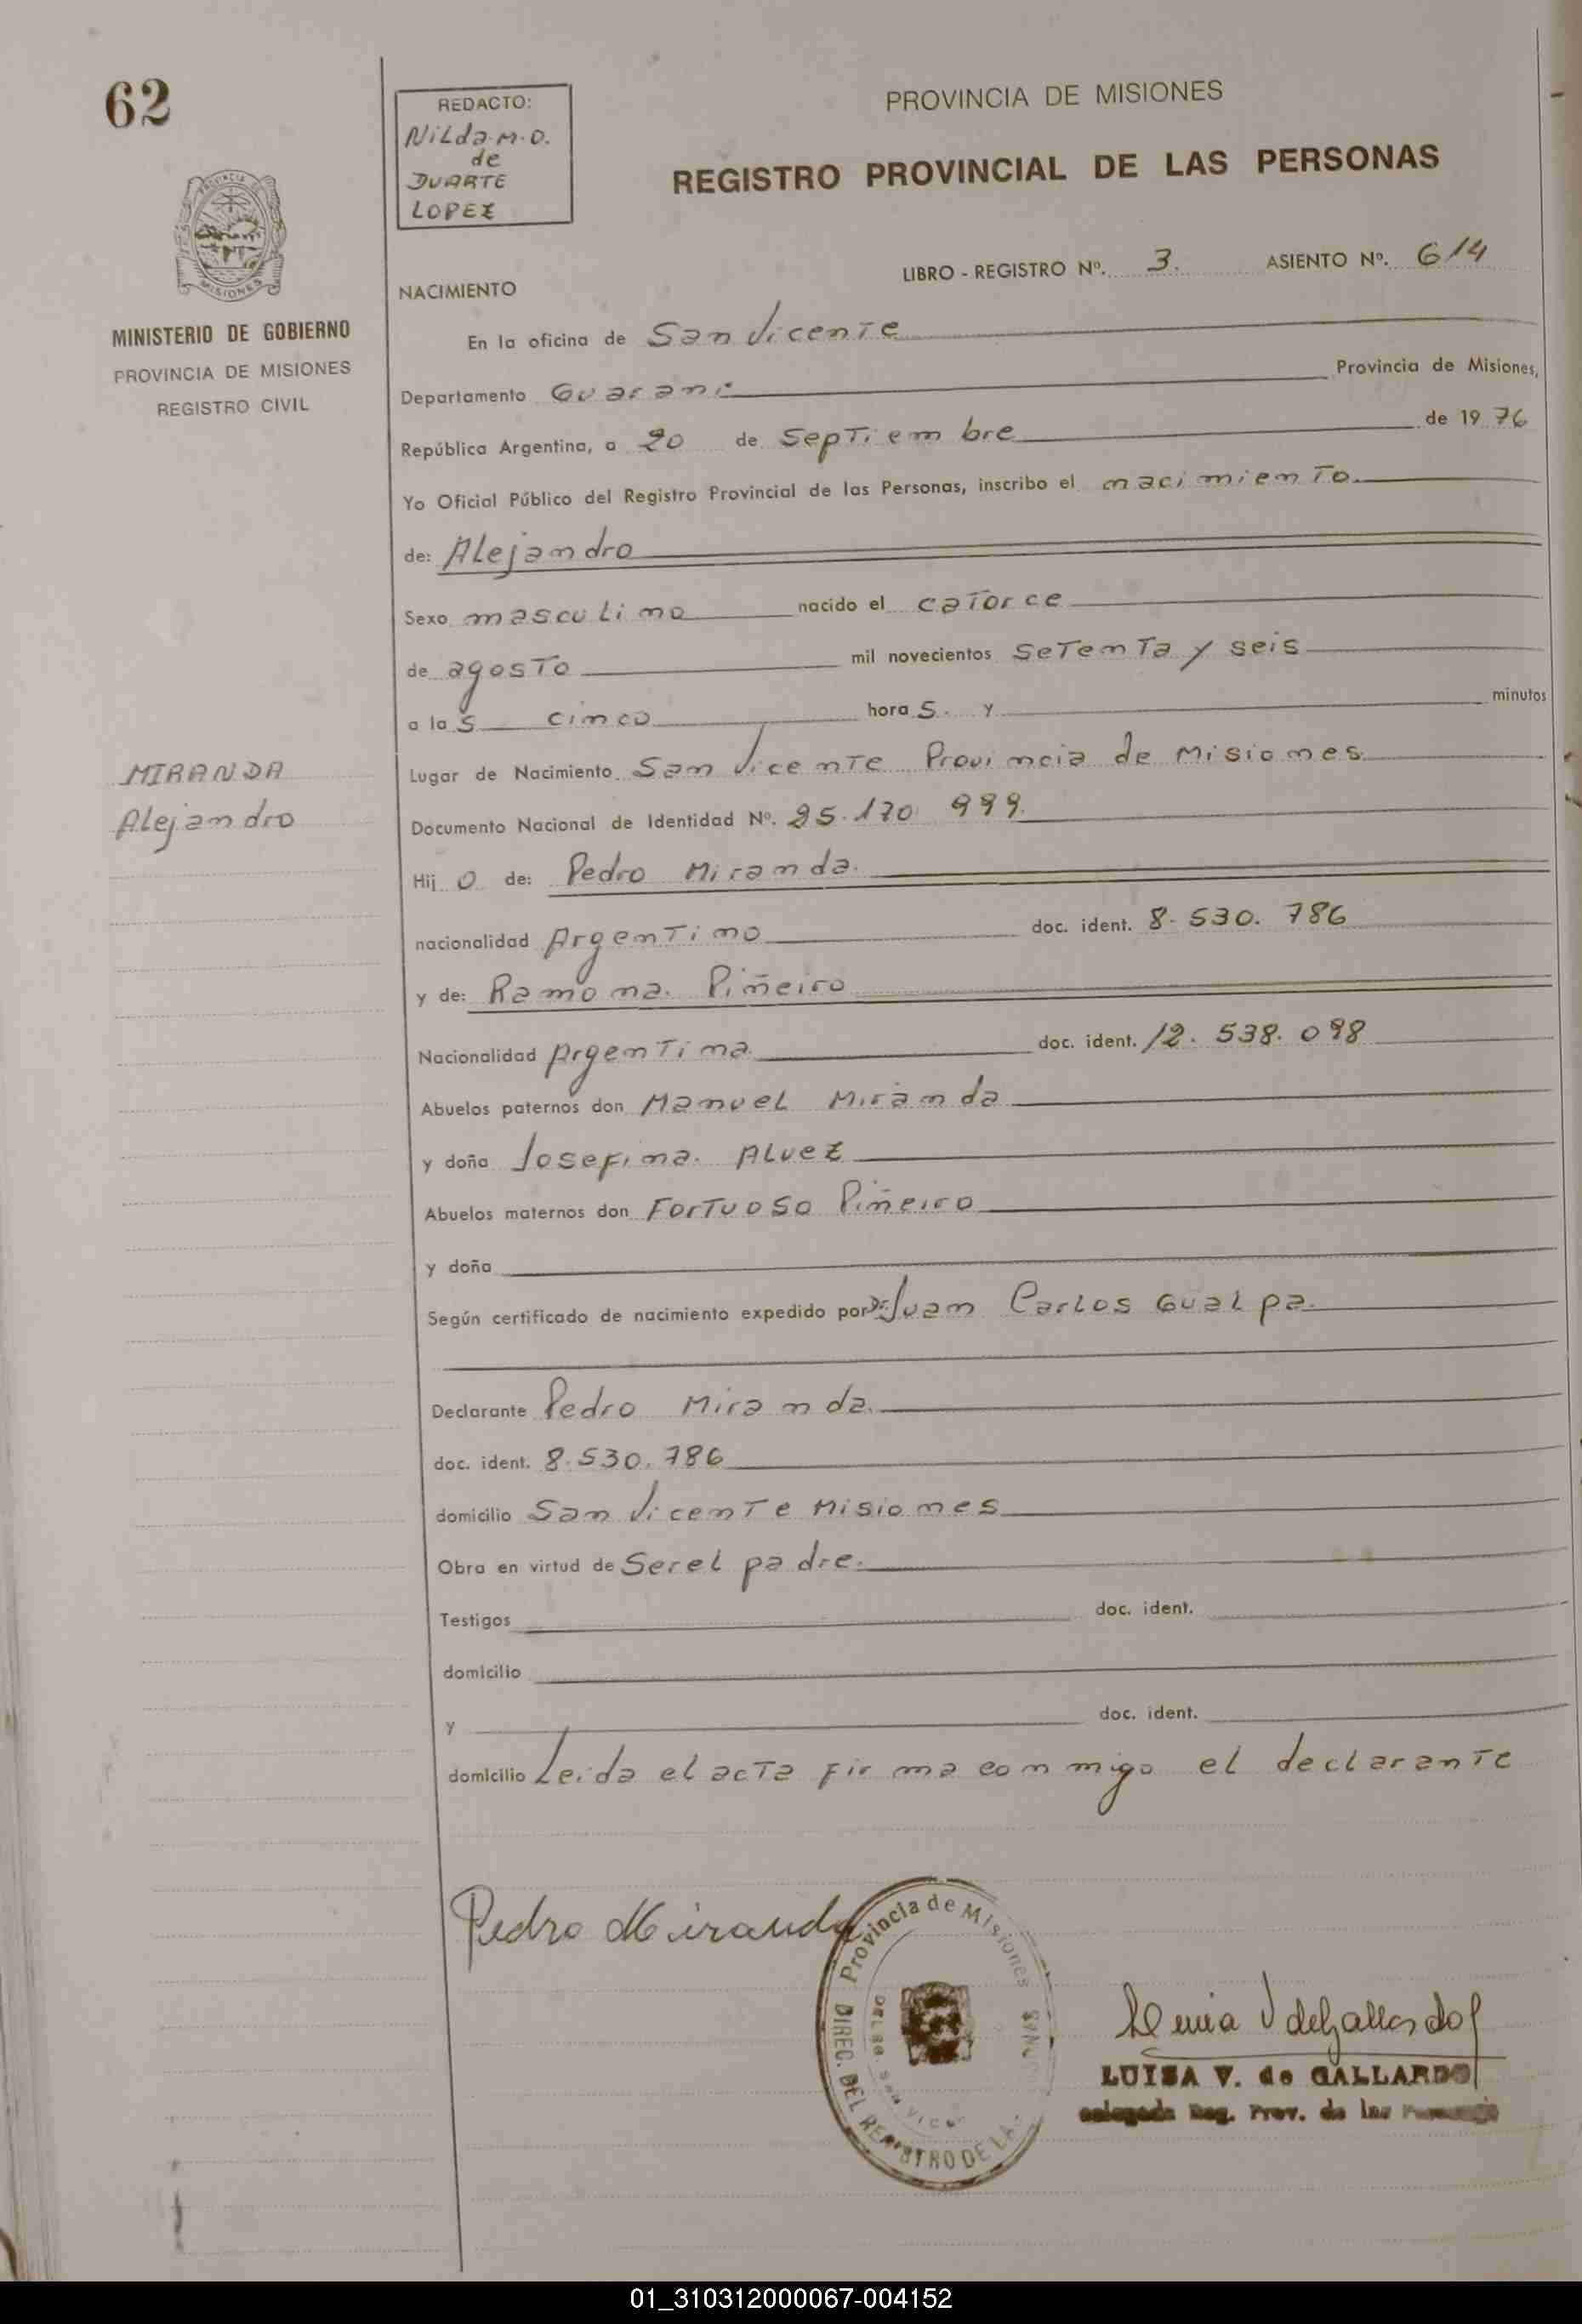 62
REDACTO:
Nilda M. O.
de
DUARTE
LOPEZ
PROVINCIA DE MISIONES
REGISTRO PROVINCIAL DE LAS PERSONAS
MINISTERIO DE GOBIERNO
PROVINCIA DE MISIONES
REGISTRO CIVIL
LIBRO - REGISTRO Nº. 3. ASIENTO Nº. 614
NACIMIENTO
En la oficina de San Vicente
Departamento Guarani Provincia de Misiones,
República Argentina, a 20 de Septiembre de 1976
Yo Oficial Público del Registro Provincial de las Personas, inscribo el nacimiento.
de: Alejandro
Sexo masculino nacido el catorce
de agosto mil novecientos setenta y seis
a las cinco horas. y minutos
MIRANDA
Alejandro
Lugar de Nacimiento San Vicente Provincia de Misiones
Documento Nacional de Identidad Nº. 25.170.999.
Hijo de: Pedro Miranda.
nacionalidad Argentino doc. ident. 8.530.786
y de: Ramona. Piñeiro
Nacionalidad Argentina doc. ident. 12.538.098
Abuelos paternos don Manuel Miranda
y doña Josefina. Alvez
Abuelos maternos don Fortuoso Piñeiro
y doña
Según certificado de nacimiento expedido por Dr. Juan Carlos Gualpa.
Declarante Pedro Miranda.
doc. ident. 8.530.786
domicilio San Vicente Misiones
Obra en virtud de Ser el padre.
Testigos doc. ident.
domicilio
y doc. ident.
domicilio Leida el acta firma conmigo el declarante
Pedro Miranda
Provincia de Misiones
DIREC. DEL REGISTRO DE LA
LUISA V. de GALLARDO
Delegada Reg. Prov. de las Personas
01_310312000067-004152